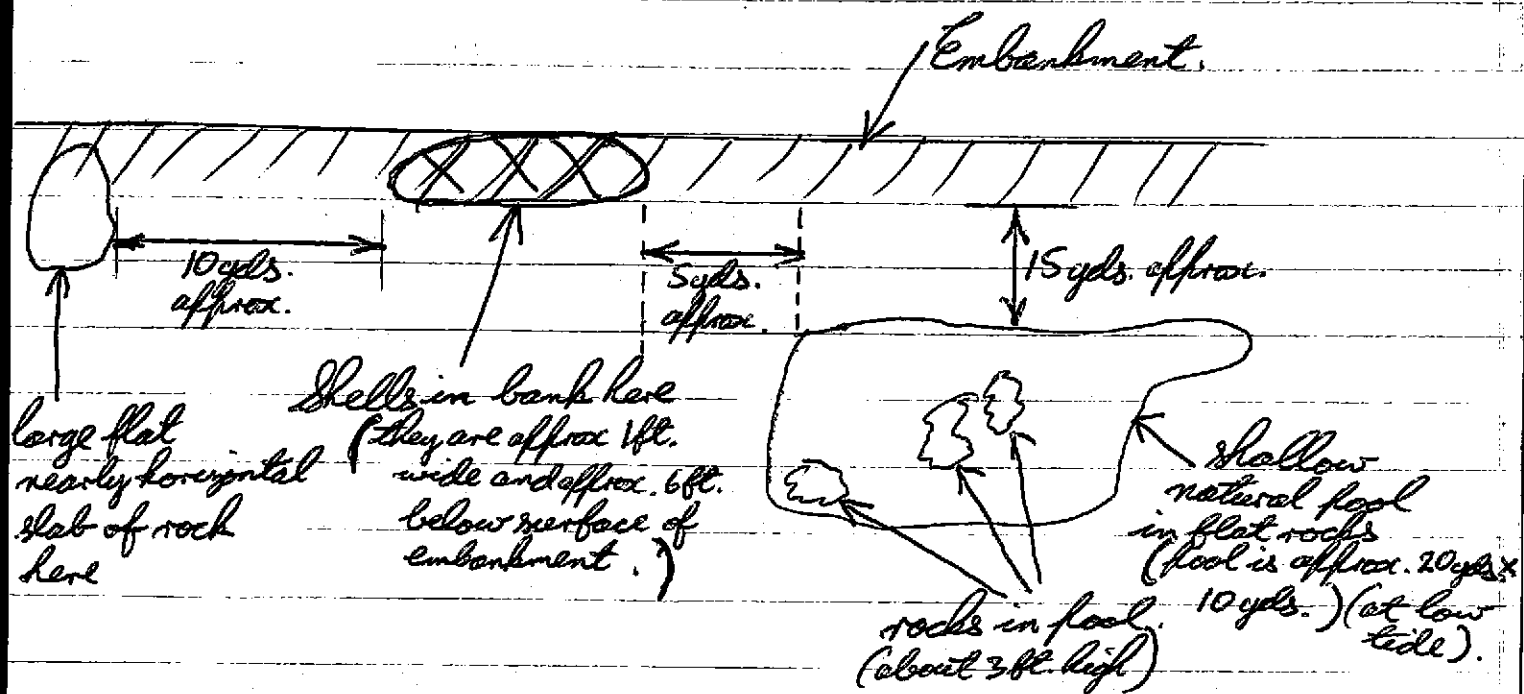 Embankment.
10 yds.
approx.
5 yds.
approx.
15 yds. approx.
large flat
nearly horizontal
slab of rock
here
Shells in bank here
(they are approx 1ft.
wide and approx. 6ft.
below surface of
embankment.)
rocks in pool.
(about 3 ft. high)
shallow
natural pool
in flat rocks
(pool is approx. 20 yds ×
10 yds.) (at low
tide).